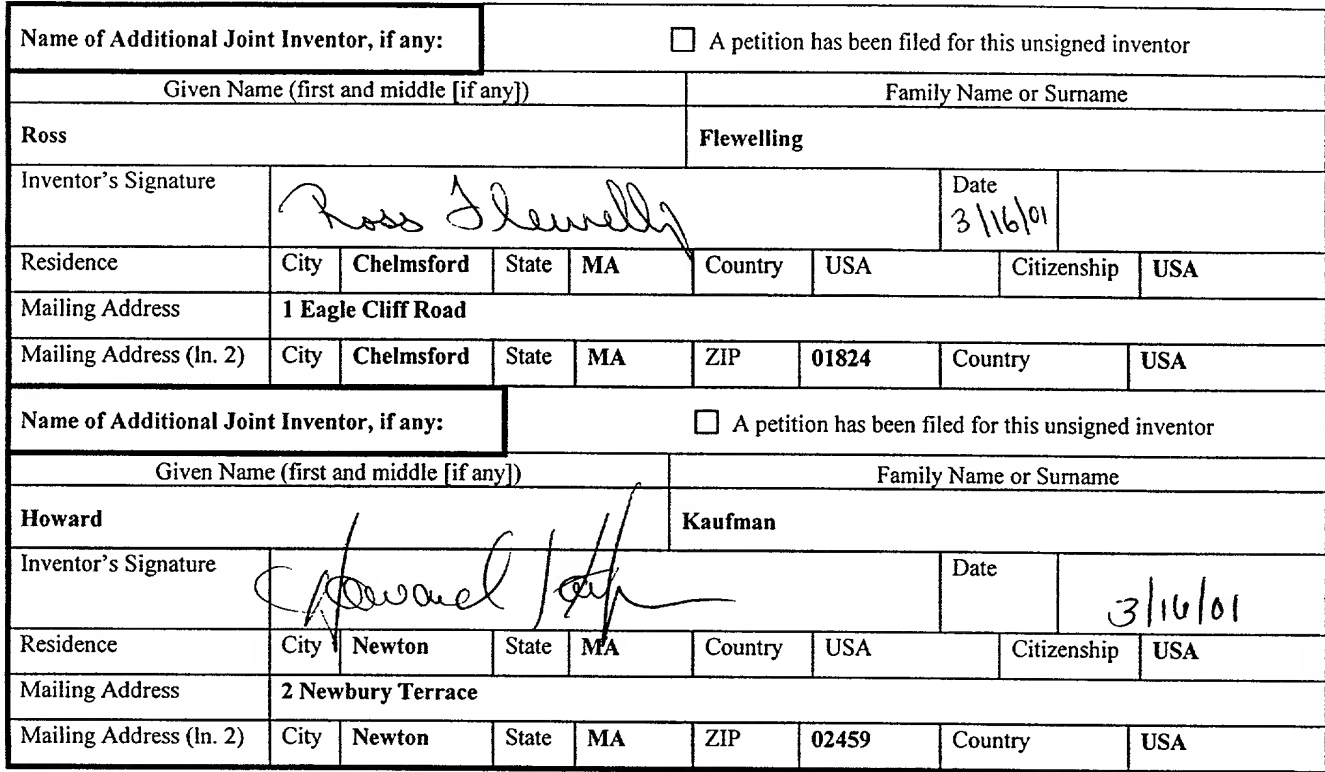 Name of Additional Joint Inventor, if any: ☐ A petition has been filed for this unsigned inventor
Given Name (first and middle [if any]) Family Name or Surname
Ross Flewelling
Inventor's Signature Ross Flewelling Date 3/16/01
Residence City Chelmsford State MA Country USA Citizenship USA
Mailing Address 1 Eagle Cliff Road
Mailing Address (ln. 2) City Chelmsford State MA ZIP 01824 Country USA
Name of Additional Joint Inventor, if any: ☐ A petition has been filed for this unsigned inventor
Given Name (first and middle [if any]) Family Name or Surname
Howard Kaufman
Inventor's Signature Howard Kaufman Date 3/16/01
Residence City Newton State MA Country USA Citizenship USA
Mailing Address 2 Newbury Terrace
Mailing Address (ln. 2) City Newton State MA ZIP 02459 Country USA